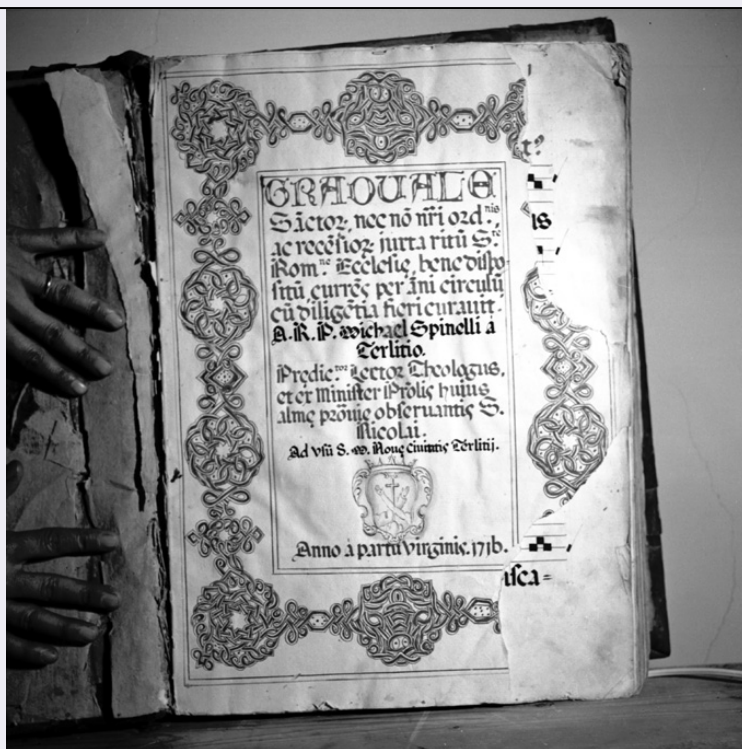 GRADUALE
Sāctor, nec nō n̄ri ord.nis
ac recēsior juxta ritū S.te
Rom.ne Ecclesię, bene dispo
sitū, currēs per āni circulū
cū diligētia fieri curavit.
A. R. P. Michael Spinelli à
Terlitio.
Prędic.tor Lector Theologus,
et ex Minister Prōlis hujus
almę provīię observantię S.
Nicolai.
Ad vsū S. M. Nouę Ciuitatis Terlitij.
Anno à partu virginis. 1716.
t?
is
isca=